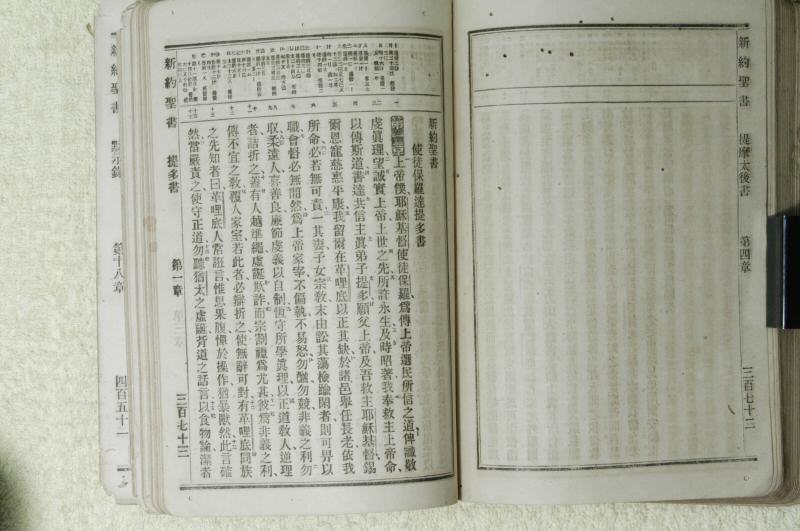 新約聖書 提摩太後書 第四章 三百七十三
新約聖書
使徒保羅達提多書
第一章 上帝僕、耶穌基督使徒保羅、爲傳上帝選民所信之道、俾識敬
虔眞理、望誠實上帝上世之先所許永生、及時昭著、我奉救主上帝命、
以傳斯道、書達共信主眞弟子提多、願父上帝、及吾救主耶穌基督、錫
爾恩寵慈惠平康、我留爾在革哩底、以正其缺、於諸邑舉任長老、依我
所命、必若無可責、一其妻、子女宗教、未由訟其蕩檢踰閑者、則可畀以
職、會督必無間然、爲上帝家宰、不偏執、不易怒、勿酗、勿競、非義之利勿
取、柔遠人、喜善良、廉節虔義以自制、恆守所學眞理、以正道教人、逆理
者詰折之、蓋有人越準繩、虛誕欺詐、而宗割禮爲尤甚、彼爲非義之利、
傳不宜之教、覆人家室、若此者、必辯折之、使無辭可對、有革哩底同族
之先知者曰、革哩底人常誑言、惟思果腹、憚於操作、猶暴獸然、此言確
然、當嚴責之、使守正道、勿聽猶太之虛誕、背道之話言、以食物論潔者
新約聖書 提多書 第一章 三百七十三
新約聖書 默示錄 第十八章 四百五十一